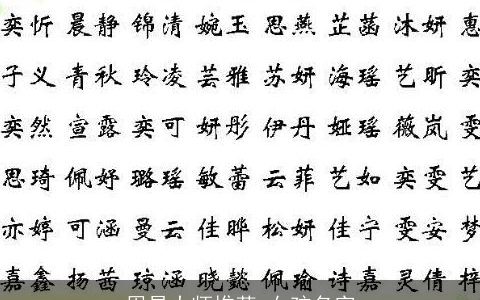 奕忻 晨静 锦清 婉玉 思燕 芷菡 沐妍 惠
子义 青秋 玲凌 芸雅 苏妍 海瑶 艺昕 奕
奕然 宣露 奕可 妍彤 伊丹 娅瑶 薇岚 雯
思琦 佩妤 璐瑶 敏蕾 云菲 艺如 奕雯 艺
亦婷 可涵 曼云 佳晔 松妍 佳宁 雯安 梦
嘉鑫 扬茜 琼涵 晓懿 佩瑜 诗嘉 灵倩 梓